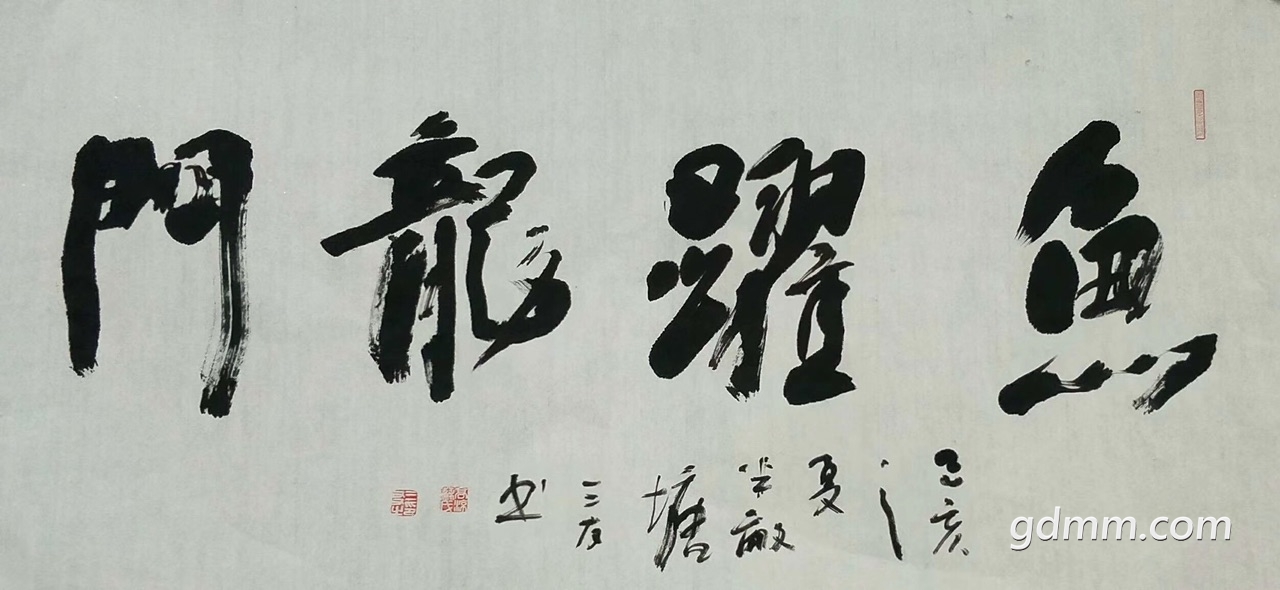 魚躍龍門
己亥之夏半畝塘三石書
gdmm.com